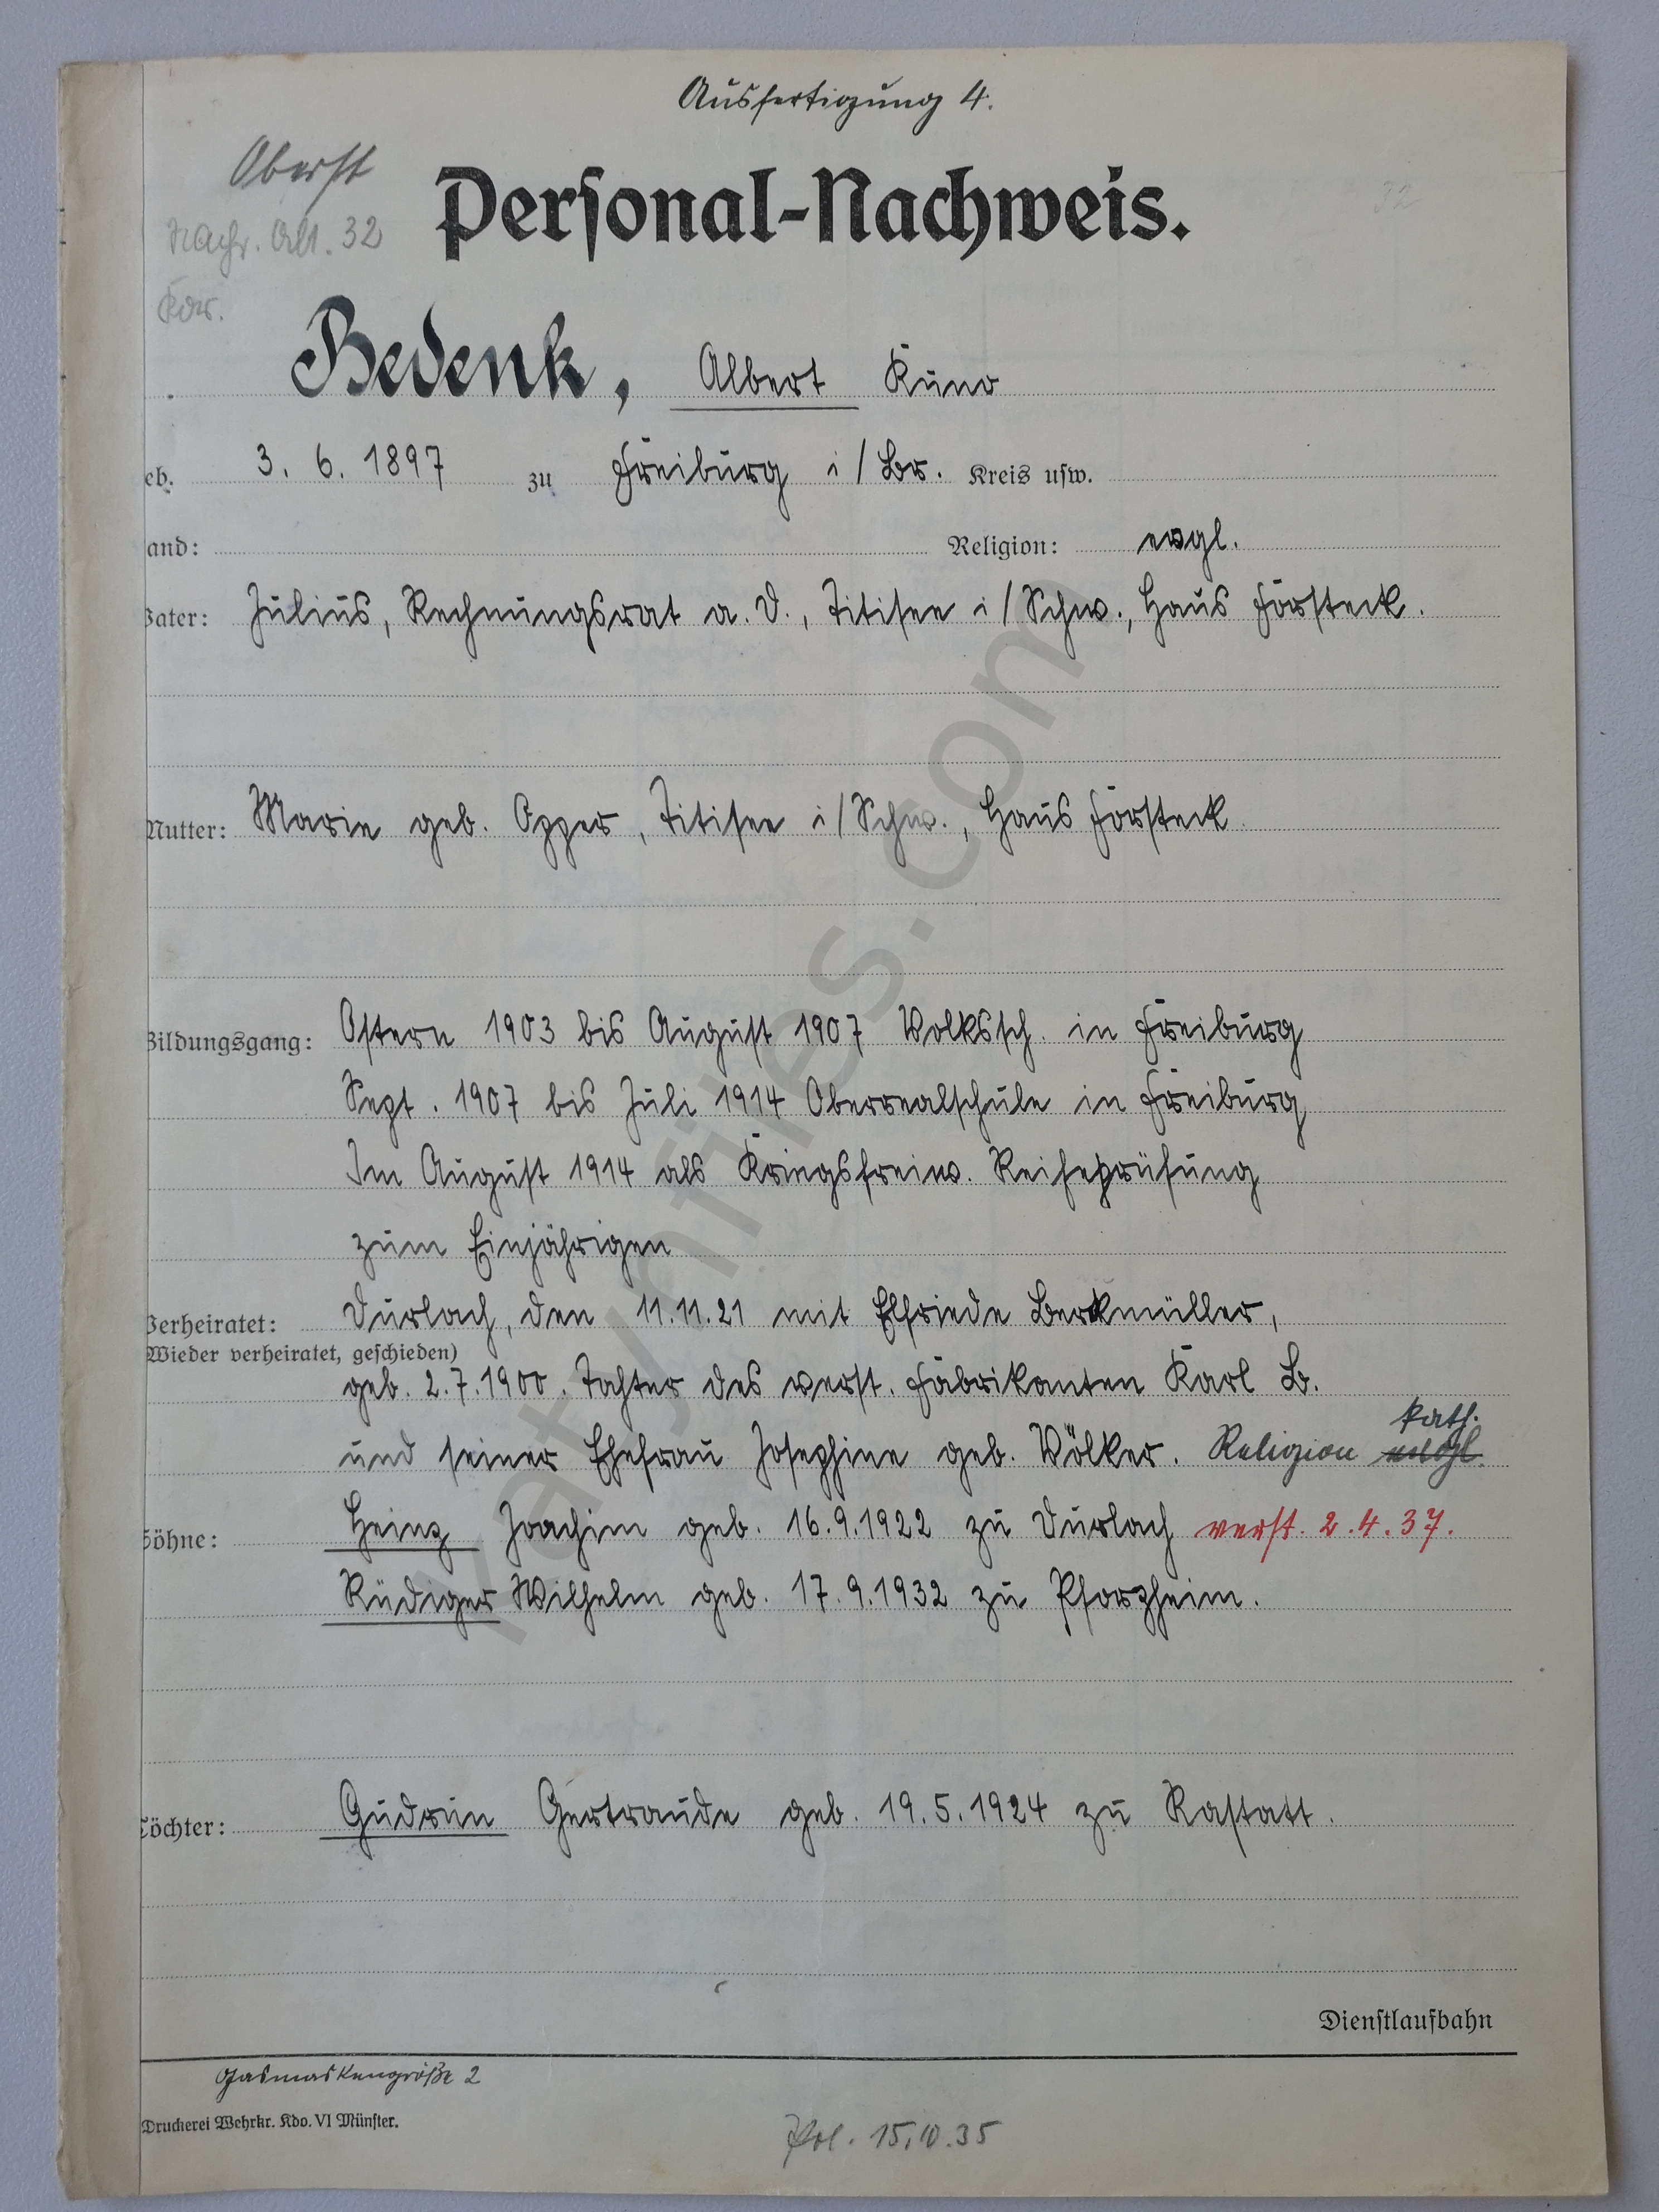 Ausfertigung 4.
Oberst
Personal-Nachweis.
32
Nachr. Abt. 32
Bedenk, Albert Kuno
eb. 3. 6. 1897 zu Freiburg i/Br. Kreis usw.
and: Religion: evgl.
Vater: Julius, Rechnungsrat a. D., Titisee i/Schw., Haus Försteck.
Mutter: Marie geb. Opper, Titisee i/Schw., Haus Försteck
Bildungsgang: Ostern 1903 bis August 1907 Volkssch. in Freiburg
Sept. 1907 bis Juli 1914 Oberrealschule in Freiburg
Im August 1914 als Kriegsfreiw. Reifeprüfung
zum Einjährigen
Verheiratet: Durlach, den 11.11.21 mit Elfriede Berckmüller,
Wieder verheiratet, geschieden)
geb. 2.7.1900. Tochter des verst. Fabrikanten Karl B.
kath.
und seiner Ehefrau Josephine geb. Völker. Religion evgl.
Söhne: Heinz Joachim geb. 16.9.1922 zu Durlach verst. 2.4.37.
Rüdiger Wilhelm geb. 17.9.1932 zu Pforzheim.
Töchter: Gudrun Gertraude geb. 19.5.1924 zu Rastatt.
Dienstlaufbahn
Gasmaskengröße 2
Druckerei Wehrkr. Kdo. VI Münster.
15.10.35
katynfiles.com